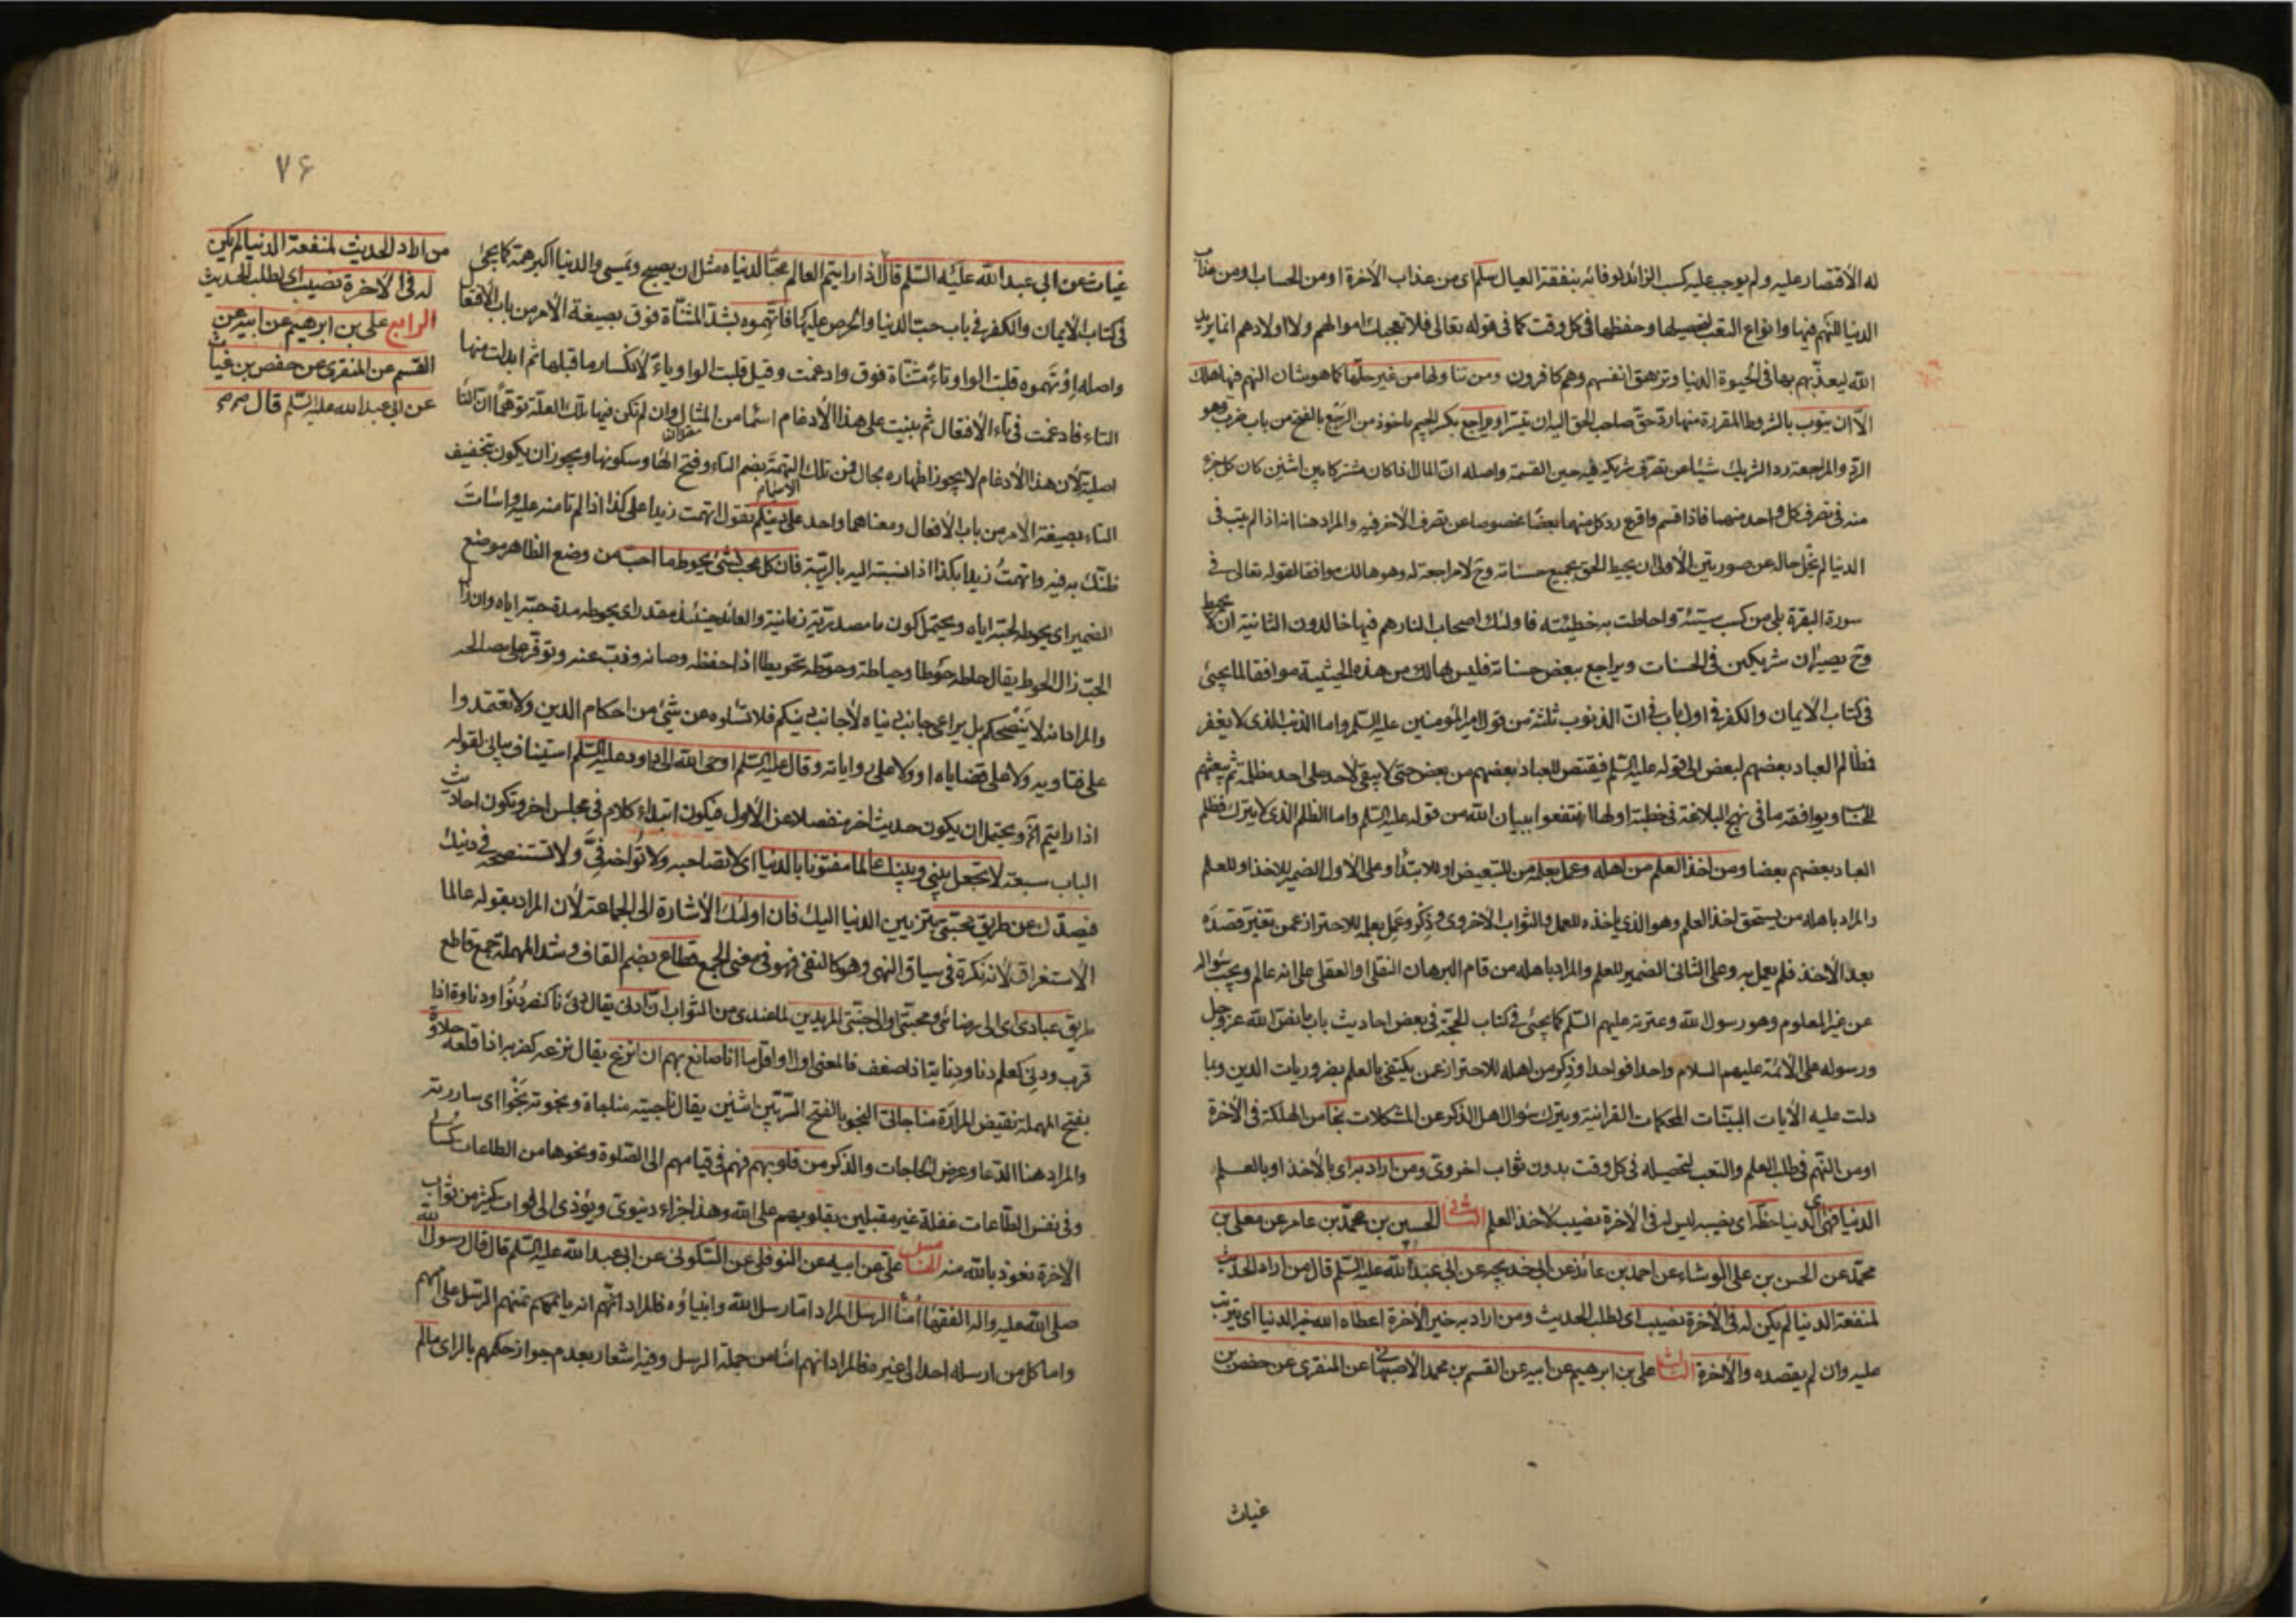 له الأقتصار عليه ولم يوجب عليه كسب الزائد لوفائه بنفقة العيال سلم اى من عذاب الآخرة او من الحساب او من عذاب
الدنيا للنهم فيها وانواع التعب لتحصيلها وحفظها فى كل وقت كما فى قوله تعالى فلا تعجبك اموالهم ولا اولادهم انما يريد
الله ليعذبهم بها فى الحيوة الدنيا وتزهق انفسهم وهم كافرون ومن تناولها من غير حلها كما هو شان النهم فيها هلك
الا ان يتوب بالشروط المقررة منها رد حق صاحب الحق اليه ان تيسر او يراجع بكسر الجيم ماخوذ من الرجع بالفتح من باب ضرب وهو
الرد والمراجعة رد الشريك شيئا عن تصرف شريكه فيه حين القسمة واصله ان المال اذا كان مشتركا بين اثنين كان كل جزء
منه فى تصرف كل واحد منهما فاذا قسم واقرع رد كل منهما بعضا مخصوصا عن تصرف الآخر فيه والمراد هنا انه اذا لم يتب فى
الدنيا لم يخل حاله عن صورتين الأولى ان يحيط الحق بجميع حسناته وح لا مراجعة له وهو هالك موافقا لقوله تعالى فى
سورة البقرة بلى من كسب سيئة واحاطت به خطيئته فاولئك اصحاب النار هم فيها خالدون الثانية ان لا يحيط
وح يصيران شريكين فى الحسنات ويراجع ببعض حسناته فليس بهالك من هذه الحيثية موافقا لما يجئ
فى كتاب الأيمان والكفر فى اول باب فى ان الذنوب ثلثة من قول امير المؤمنين عليه السلم واما الذنب الذى لا يغفر
فظالم العباد بعضهم لبعض الى قوله عليه السلم فيقتص للعباد بعضهم من بعض حتى لا يبقى لأحد على احد مظلمة ثم يبعثهم
للحساب ويوافقه ما فى نهج البلاغة فى خطبة اولها انتفعوا ببيان الله من قوله عليه السلم واما الظلم الذى لا يترك فظلم
العباد بعضهم بعضا ومن اخذ العلم من اهله وعمل بعلمه من للتبعيض او للابتداء وعلى الأول الضمير للاخذ او للعلم
والمراد باهله من يستحق اخذ العلم وهو الذى ياخذه للعمل والثواب الآخروى وذكر وعمل بعلمه للاحتراز عمن تغير قصده
بعد الأخذ فلم يعمل به وعلى الثانى الضمير للعلم والمراد باهله من قام البرهان النقلى او العقلى على انه عالم ويجب سؤاله
عن غير المعلوم وهو رسول الله وعترته عليهم السلم كما يجئ فى كتاب الحجة فى بعض احاديث باب ما نص الله عز وجل
ورسوله على الأئمة عليهم السلام واحدا فواحدا وذكر من اهله للاحتراز عمن يكتفى بالعلم بضروريات الدين وبما
دلت عليه الآيات البينات المحكمات القرانية ويترك سؤال اهل الذكر عن المشكلات نجا من الهلكة فى الآخرة
او من النهم فى طلب العلم والتعب لتحصيله فى كل وقت بدون ثواب اخروى ومن اراد به اى بالأخذ او بالعلم
الدنيا فهى اى الدنيا حظه اى نصيبه ليس له فى الآخرة نصيب لأخذ العلم الثانى الحسين بن محمد بن عامر عن معلى بن
محمد عن الحسن بن على الوشاء عن احمد بن عائذ عن ابى خديجه عن ابى عبد الله عليه السلم قال من اراد الحديث
لمنفعة الدنيا لم يكن له فى الآخرة نصيب اى لطلب الحديث ومن اراد به خير الآخرة اعطاه الله خير الدنيا اى يترتب
عليه وان لم يقصده والآخرة الثالث على بن ابرهيم عن ابيه عن القسم بن محمد الأصبهانى عن المنقرى عن حفص بن
غياث
٧۶
غياث عن ابى عبد الله عليه السلم قال اذا رايتم العالم محبا لدنياه مثل ان يصبح ويمسى والدنيا اكبر همه كما يجئ
فى كتاب الأيمان والكفر فى باب حب الدنيا والحرص عليها فاتهموه بشد المثناة فوق بصيغة الأمر من باب الأفتعال
واصله اوتهموه قلبت الواو تاء مثناة فوق وادغمت وقيل قلبت الواو ياء لأنكسار ما قبلها ثم ابدلت منها
التاء فادغمت فى تاء الأفتعال ثم بنيت على هذا الأدغام اسما من المثال وان لم تكن فيها تلك العلة توهما ان التاء
اصلية لأن هذا الأدغام لا يجوز اظهاره بحال فمن تلك التهمة بضم التاء وفتح الهاء وسكونها ويجوز ان يكون بتخفيف
التاء بصيغة الأمر من باب الأفعال ومعناهما واحد على دينكم تقول اتهمت زيدا على كذا اذا لم تامنه عليه واسات
ظنك به فيه واتهمت زيدا بكذا اذا نسبته اليه بالريبة فان كل محب لشئ يحوط ما احب من وضع الظاهر موضع
الضمير اى يحوطه لحبه اياه ويحتمل كون ما مصدرية زمانية والعائد حينئذ مقدر اى يحوطه مدة حبه اياه وان زال
الحب زال الحوط يقال حاطه حوطا وحياطة وحوطه تحويطا اذا حفظه وصانه وذب عنه وتوفر على مصالحه
والمراد انه لا ينصحكم بل يراعى جانب دنياه لا جانب دينكم فلا تسئلوه عن شئ من احكام الدين ولا تعتمدوا
على فتاويه ولا على قضاياه او ولا على رواياته وقال عليه السلم اوحى الله الى داود عليه السلم استيناف بيانى لقوله
اذا رايتم الخ ويحتمل ان يكون حديث اخر منفصلا عن الأول فيكون ابتداء كلام فى مجلس اخر وتكون احاديث
الباب سبعة لا تجعل بينى وبينك عالما مفتونا بالدنيا اى لا تصاحبه ولا تواخه فى ولا تستنصحه فى دينك
فيصدك عن طريق محبتى بتزيين الدنيا اليك فان اولئك الأشارة الى الجماعة لأن المراد بقوله عالما
الأستغراق لأنه نكرة فى سياق النهى وهو كالنفى فهو فى معنى الجمع قطاع بضم القاف وشد المهملة جمع قاطع
طريق عبادى اى الى رضائى ومحبتى او الى جنتى المريدين لما عندى من الثواب ان ادنى يقال دنئ دنا كنصر دنوا ودناوة اذا
قرب ودنى كعلم دنا ودناية اذا ضعف فالمعنى اول او اقل ما انا صانع بهم ان انزع يقال نزعه كضربه اذا قلعه حلاوة
بفتح المهملة نقيض المرارة مناجاتى النجو بالفتح السر بين اثنين يقال ناجيته مناجاة ونجوته نجوا اى ساررته
والمراد هنا الدعا وعرض الحاجات والذكر من قلوبهم فهم فى قيامهم الى الصلوة ونحوها من الطاعات كسالى
وفى نفس الطاعات غفلة غير مقبلين بقلوبهم على الله وهذا جزاء دنيوى ويؤدى الى فوات كثير من ثواب
الآخرة نعوذ بالله منه الخامس على عن ابيه عن النوفلى عن السكونى عن ابى عبد الله عليه السلم قال قال رسول الله
صلى الله عليه واله الفقهاء امناء الرسل المراد اما رسل الله وانبياؤه فالمراد انهم امنهم الرسل على اممهم
واما كل من ارسله احد الى غيره فالمراد انهم امناء من جملة الرسل وفيه اشعار بعدم جواز حكمهم بالراى مالم
من اراد الحديث لمنفعة الدنيا لم يكن
له فى الآخرة نصيب اى لطلب الحديث
الرابع على بن ابرهيم عن ابيه عن
القسم عن المنقرى عن حفص بن غياث
عن ابى عبد الله عليه السلم قال